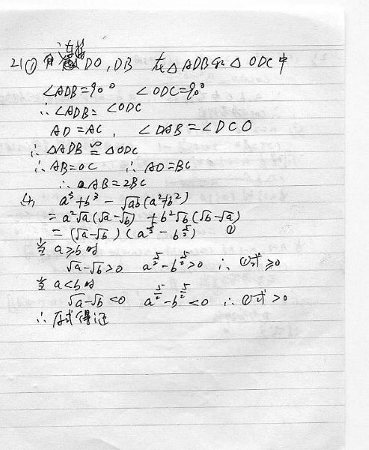 21① 连接DO,DB 在△ADB和△ODC中
∠ADB=90° ∠ODC=90°
∴∠ADB=∠ODC
AD=AC, ∠DAB=∠DCO
∴△ADB≌△ODC
∴AB=OC ∴AO=BC
∴AB=2BC
a³+b³-√ab(a²+b²)
=a²√a(√a-√b)+b²√b(√b-√a)
=(√a-√b)(a^{5/2}-b^{5/2}) ①
当a≥b时
√a-√b≥0 a^{5/2}-b^{5/2}≥0 ∴①式≥0
当a<b时
√a-√b<0 a^{5/2}-b^{5/2}<0 ∴①式>0
∴原式得证